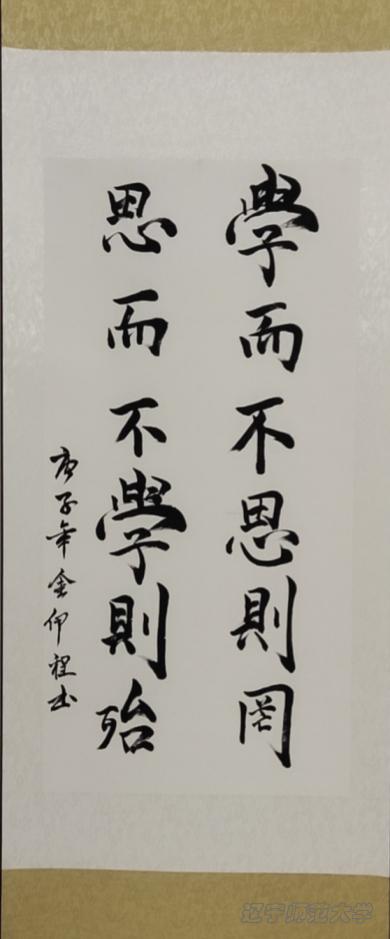 學而不思則罔
思而不學則殆
庚子年金伊程书
辽宁师范大学